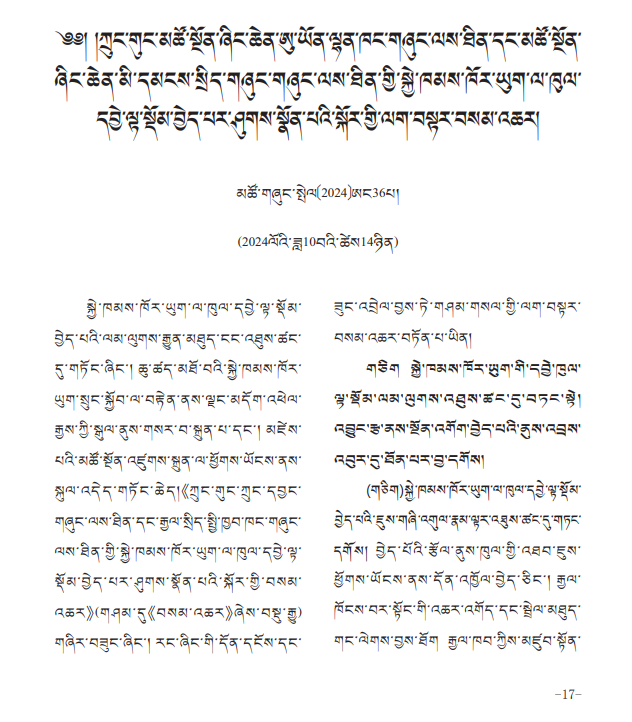 ༄༅། །ཀྲུང་གུང་མཚོ་སྔོན་ཞིང་ཆེན་ཨུ་ཡོན་ལྷན་ཁང་གཞུང་ལས་ཐིན་དང་མཚོ་སྔོན་
ཞིང་ཆེན་མི་དམངས་སྲིད་གཞུང་གཞུང་ལས་ཐིན་གྱི་སྐྱེ་ཁམས་ཁོར་ཡུག་ལ་ཁུལ་
དབྱེ་ལྟ་སྡོམ་བྱེད་པར་ཤུགས་སྣོན་པའི་སྐོར་གྱི་ལག་བསྟར་བསམ་འཆར།
མཚོ་གཞུང་སྤེལ(2024)ཨང36པ།
(2024ལོའི་ཟླ10བའི་ཚེས14ཉིན)
སྐྱེ་ཁམས་ཁོར་ཡུག་ལ་ཁུལ་དབྱེ་ལྟ་སྡོམ་
བྱེད་པའི་ལམ་ལུགས་རྒྱུན་མཐུད་ངང་འཐུས་ཚང་
དུ་གཏོང་ཞིང་། ཆུ་ཚད་མཐོ་བའི་སྐྱེ་ཁམས་ཁོར་
ཡུག་སྲུང་སྐྱོབ་ལ་བརྟེན་ནས་ལྗང་མདོག་འཕེལ་
རྒྱས་ཀྱི་སྒུལ་ནུས་གསར་བ་སྐྲུན་པ་དང་། མཛེས་
པའི་མཚོ་སྔོན་འཛུགས་སྐྲུན་ལ་ཕྱོགས་ཡོངས་ནས་
སྐུལ་འདེད་གཏོང་ཆེད།《ཀྲུང་གུང་ཀྲུང་དབྱང་
གཞུང་ལས་ཐིན་དང་རྒྱལ་སྲིད་སྤྱི་ཁྱབ་ཁང་གཞུང་
ལས་ཐིན་གྱི་སྐྱེ་ཁམས་ཁོར་ཡུག་ལ་ཁུལ་དབྱེ་ལྟ་
སྡོམ་བྱེད་པར་ཤུགས་སྣོན་པའི་སྐོར་གྱི་བསམ་
འཆར》(གཤམ་དུ《བསམ་འཆར》ཞེས་བསྡུ་རྒྱུ)
གཞིར་བཟུང་ཞིང་། རང་ཞིང་གི་དོན་དངོས་དང་
ཟུང་འབྲེལ་བྱས་ཏེ་གཤམ་གསལ་གྱི་ལག་བསྟར་
བསམ་འཆར་བཏོན་པ་ཡིན།
གཅིག སྐྱེ་ཁམས་ཁོར་ཡུག་གི་དབྱེ་ཁུལ་
ལྟ་སྡོམ་ལམ་ལུགས་འཐུས་ཚང་དུ་བཏང་སྟེ།
འབྱུང་རྩ་ནས་སྔོན་འགོག་བྱེད་པའི་ནུས་འབྲས་
འབུར་དུ་ཐོན་པར་བྱ་དགོས།
(གཅིག)སྐྱེ་ཁམས་ཁོར་ཡུག་ལ་ཁུལ་དབྱེ་ལྟ་སྡོམ་
བྱེད་པའི་ཇུས་གཞི་འགུལ་རྣམ་ལྟར་འཐུས་ཚང་དུ་གཏང་
དགོས། བྱེད་པོའི་རྩོལ་ནུས་ཁུལ་གྱི་འཐབ་ཇུས་
ཕྱོགས་ཡོངས་ནས་དོན་འཁྱོལ་བྱེད་ཅིང་། རྒྱལ་
ཁོངས་བར་སྟོང་གི་འཆར་འགོད་དང་སྦྲེལ་མཐུད་
གང་ལེགས་བྱས་ཐོག རྒྱལ་ཁབ་ཀྱིས་མཛུབ་སྟོན་
-17-